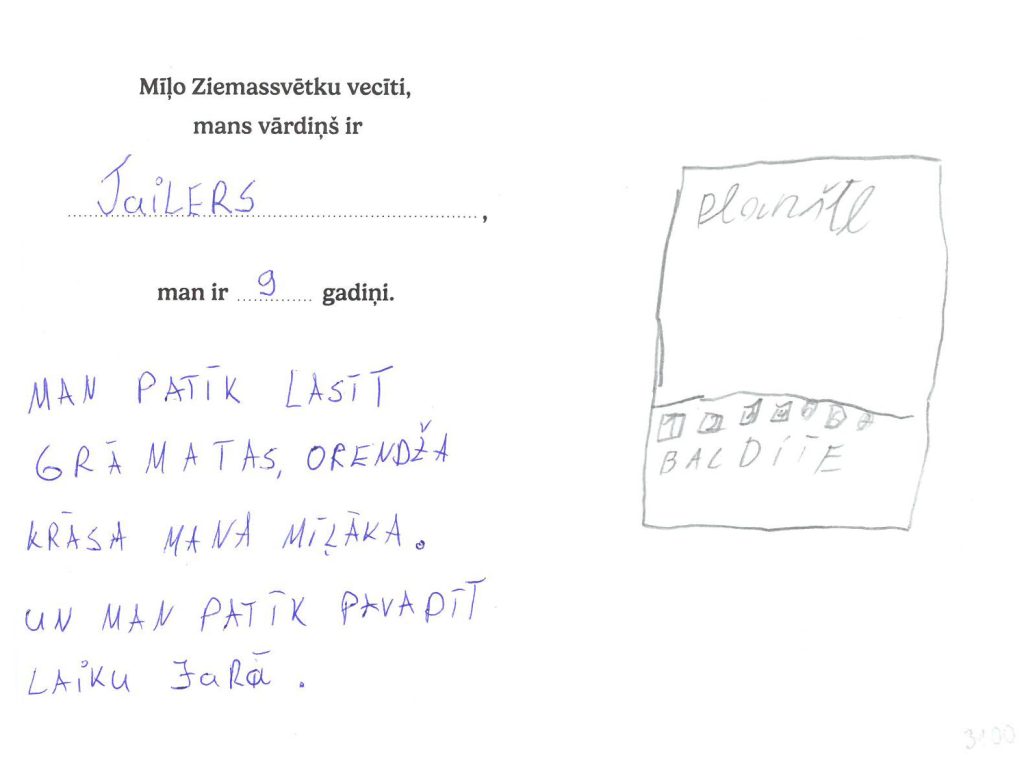 Mīļo Ziemassvētku vecīti,
mans vārdiņš ir
TaiLERS,
man ir 9 gadiņi.
MAN PATĪK LASĪT
GRĀMATAS, ORENDŽA
KRĀSA MANA MĪĻĀKA.
UN MAN PATĪK PAVADĪT
LAIKU ĪaRā.
planšte
BALDIITE
3100